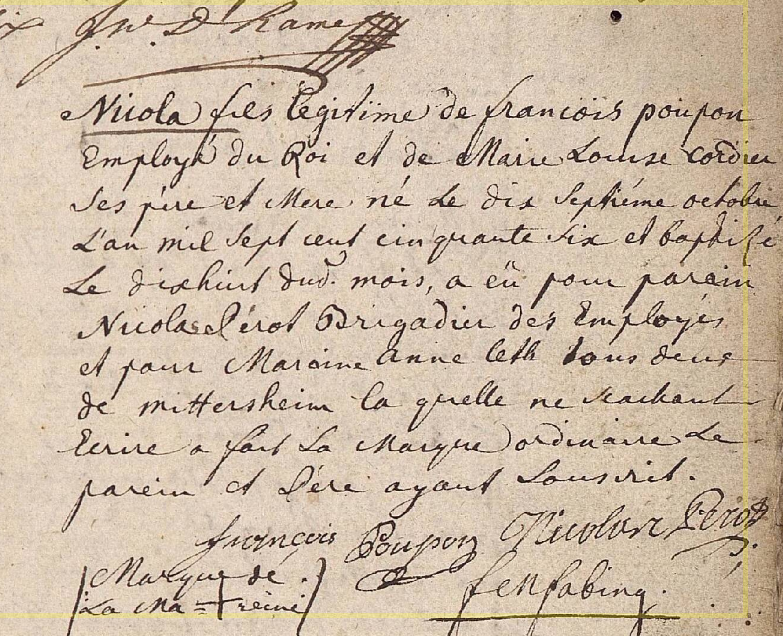 Jnº. D'hame
Nicola fils legitime de francois poupon
Employé du Roi et de Marie Louise Cordier
Ses père et Mere né Le dix Septiéme octobre
L'an mil Sept cent cinquante Six et baptize
Le dixhuit dud. mois, a eü pour parein
Nicolas Pérot Brigadier des Employés
et pour Maraine Anne leth tous deux
de mittersheim la quelle ne scachant
Ecrire a fait La Marque ordinaire Le
parein et Pére ayant Souscrit.
francois Poupon Nicolas Perot
Marque de
La Ma + reine